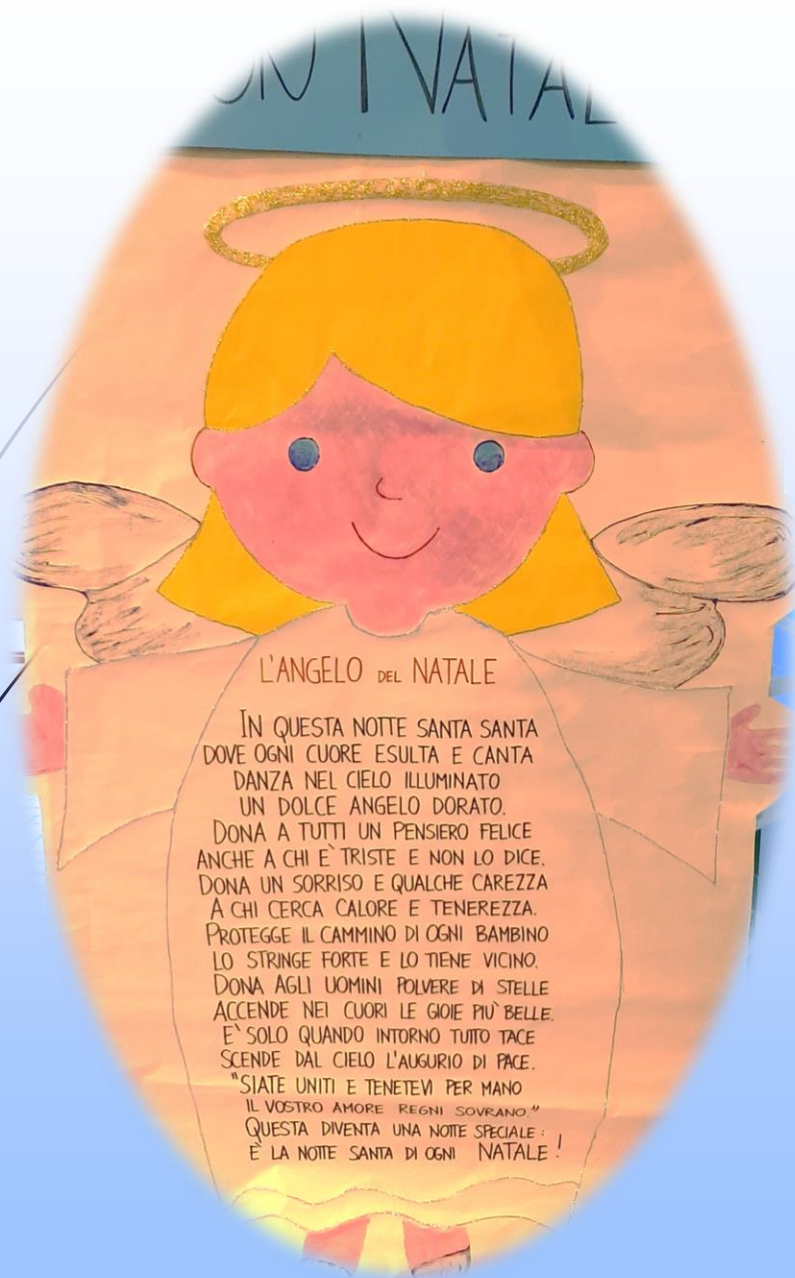 NATAL
L'ANGELO DEL NATALE
IN QUESTA NOTTE SANTA SANTA
DOVE OGNI CUORE ESULTA E CANTA
DANZA NEL CIELO ILLUMINATO
UN DOLCE ANGELO DORATO.
DONA A TUTTI UN PENSIERO FELICE
ANCHE A CHI E` TRISTE E NON LO DICE.
DONA UN SORRISO E QUALCHE CAREZZA
A CHI CERCA CALORE E TENEREZZA.
PROTEGGE IL CAMMINO DI OGNI BAMBINO
LO STRINGE FORTE E LO TIENE VICINO.
DONA AGLI UOMINI POLVERE DI STELLE
ACCENDE NEI CUORI LE GIOIE PIU` BELLE.
E` SOLO QUANDO INTORNO TUTTO TACE
SCENDE DAL CIELO L'AUGURIO DI PACE.
"SIATE UNITI E TENETEVI PER MANO
IL VOSTRO AMORE REGNI SOVRANO."
QUESTA DIVENTA UNA NOTTE SPECIALE:
È LA NOTTE SANTA DI OGNI NATALE!